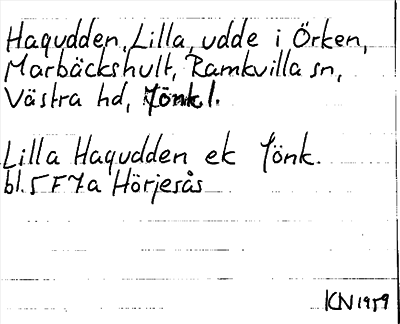 Haqudden, Lilla, udde i Örken,
Marbäckshult, Ramkvilla sn,
Västra hd, Jönk l.
Lilla Haqudden ek Jönk.
bl. 5 F 7a Hörjesås
KN 1959